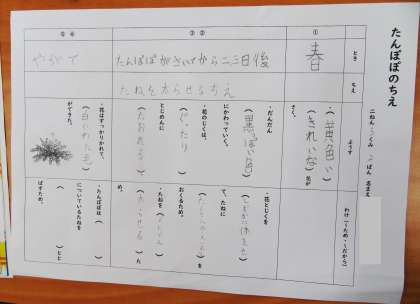 たんぽぽのちえ
二ねん くみ ばん 名まえ
とき
ちえ
ようす
わけ(~ため・~だから)
①
春
・(黄色い)
(きれいな)花が
さく。
②③
たんぽぽがさいてから二、三日後
たねを太らせるちえ
・だんだん
(黒っぽい色)
にかわっていく。
・花のじくは、
(ぐったり)
とじめんに
(たおれる)
・花とじくを
(しずかに休ませ)
て、たねに
を
おくるため。
・たねを
(太らせる)だ
め。
④⑤
やがて
・花はすっかりかれて、
(白いわた毛)
ができた。
・たんぽぽは
(　)
についているたねを
(　)とと
ばすため。